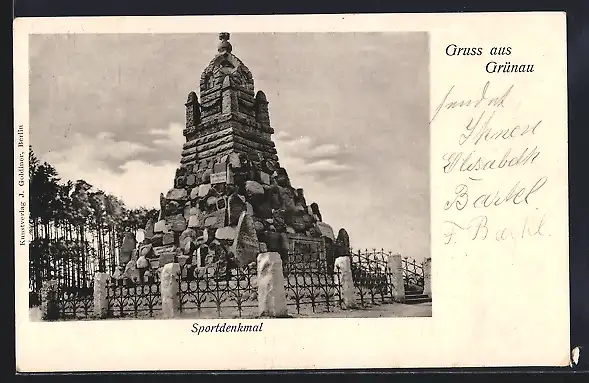 Gruss aus
Grünau
sendet
Ihnen
Elisabeth
Bartel
F. Bartel.
Kunstverlag J. Goldiner, Berlin
Sportdenkmal